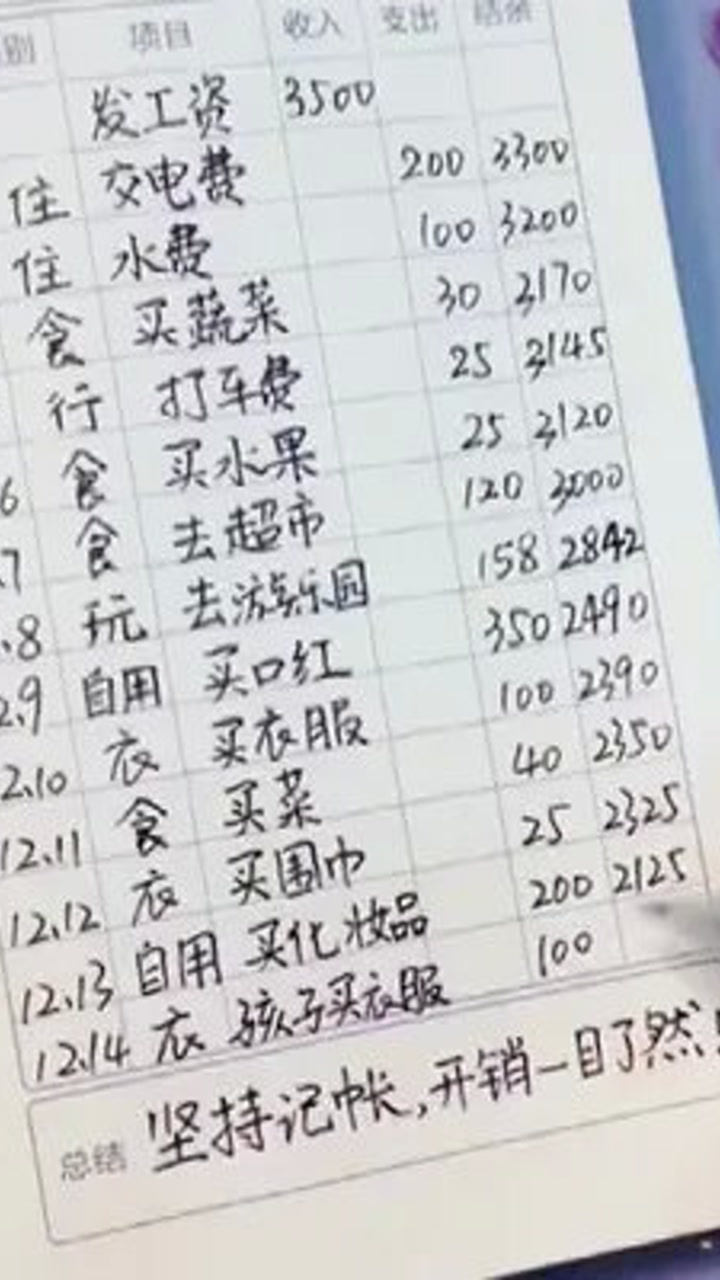 别 项目 收入 支出 结余
发工资 3500
住 交电费 200 3300
住 水费 100 3200
食 买蔬菜 30 3170
行 打车费 25 3145
6 食 买水果 25 3120
.7 食 去超市 120 3000
.8 玩 去游乐园 158 2842
2.9 自用 买口红 350 2490
2.10 衣 买衣服 100 2390
12.11 食 买菜 40 2350
12.12 衣 买围巾 25 2325
12.13 自用 买化妆品 200 2125
12.14 衣 孩子买衣服 100
总结 坚持记帐,开销一目了然!